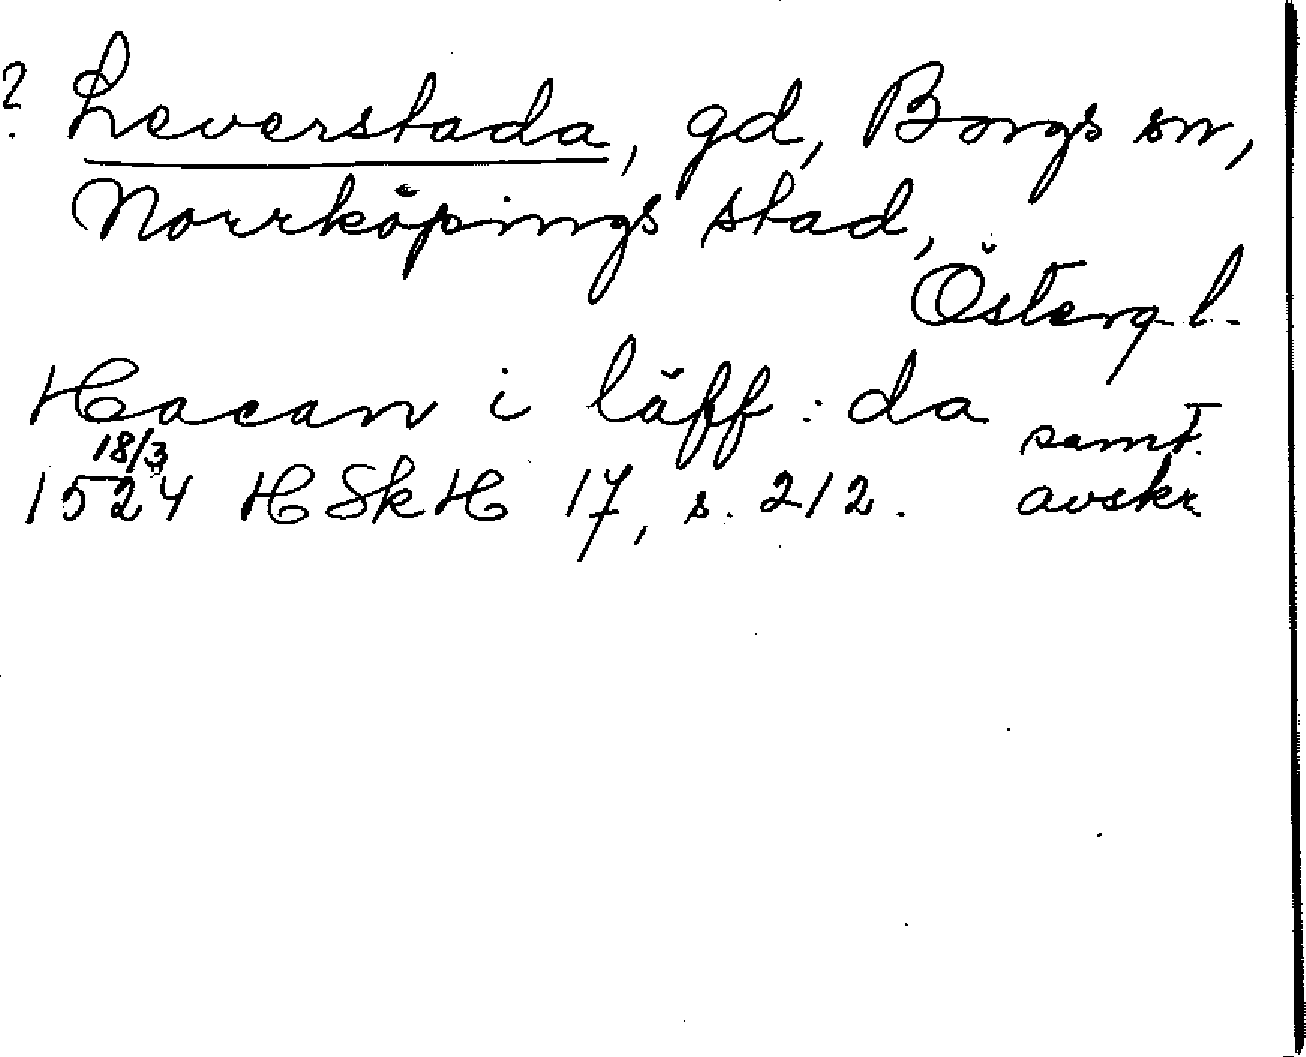 ? Leverstada, gd, Borgs sn,
Norrköpings stad,
Östergl.
Hacan i läff:da
samt.
18/3
1524 HSkH 17, s. 212. avskr.